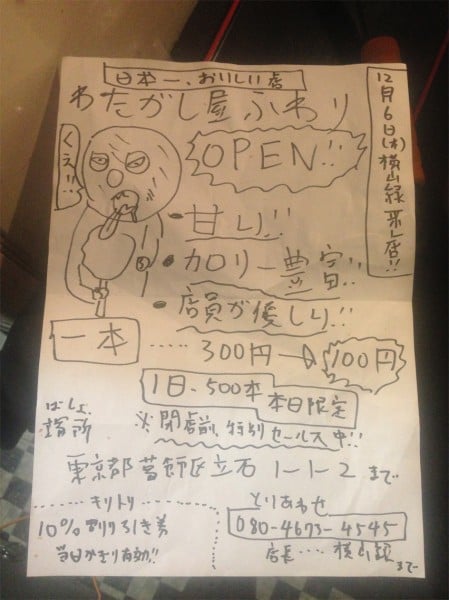 日本一、おいしい店
わたがし屋ふわり
12月6日(木)横山緑 来店!!
くえ!!
OPEN!!
・甘い!!
・カロリー豊富!!
・店員が優しい!!
一本 ……300円→100円
1日・500本 本日限定
※閉店前、特別セールス中!!
ばしょ
場所
東京都葛飾区立石1-1-2まで
キリトリ
10%割り引き券
当日かぎり有効!!
とりあわせ
080-4673-4545
店長……横山緑まで